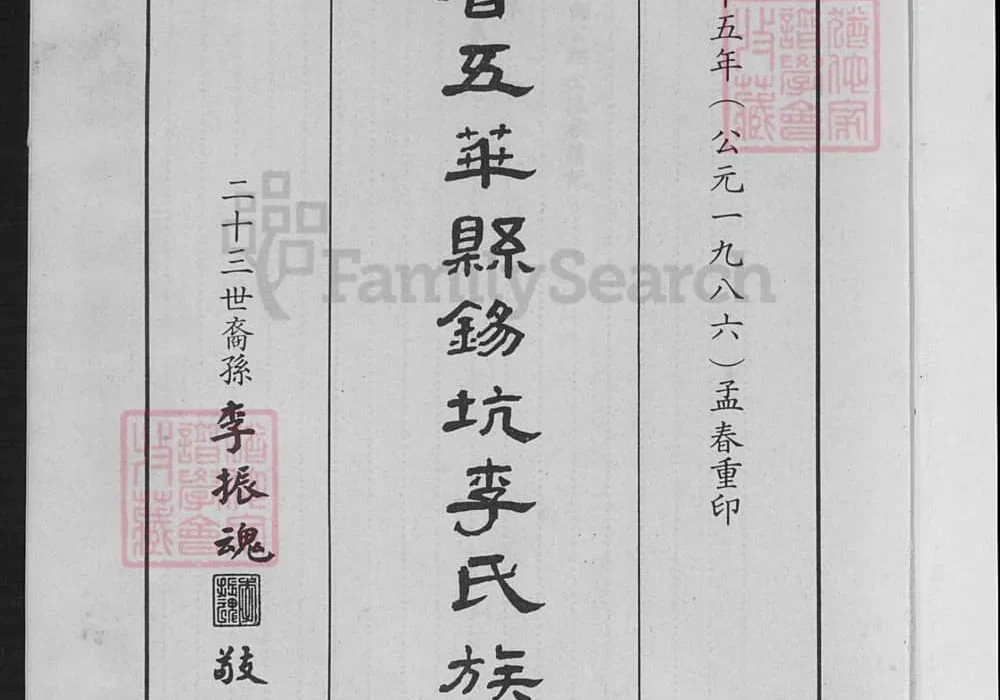 五年（公元一九八六）孟春重印
五華縣錫坑李氏族
二十三世裔孫 李振魂 敬
FamilySearch